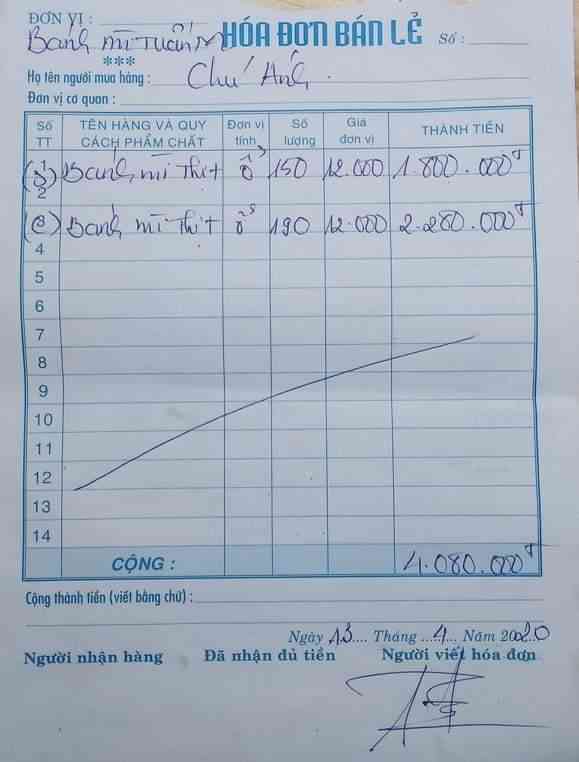 ĐƠN VỊ :
Bánh mì Tuấn M
HÓA ĐƠN BÁN LẺ
Số :
***
Họ tên người mua hàng : Chú Ánh.
Đơn vị cơ quan :
Số TT TÊN HÀNG VÀ QUY CÁCH PHẨM CHẤT Đơn vị tính Số lượng Giá đơn vị THÀNH TIỀN
1
(S) Bánh mì Thịt ổ 150 12.000 1.800.000đ
2
(C) Bánh mì Thịt ổ 190 12.000 2.280.000đ
4
5
6
7
8
9
10
11
12
13
14
CỘNG : 4.080.000đ
Cộng thành tiền (viết bằng chữ) :
Ngày 13 Tháng 4 Năm 2020
Người nhận hàng Đã nhận đủ tiền Người viết hóa đơn